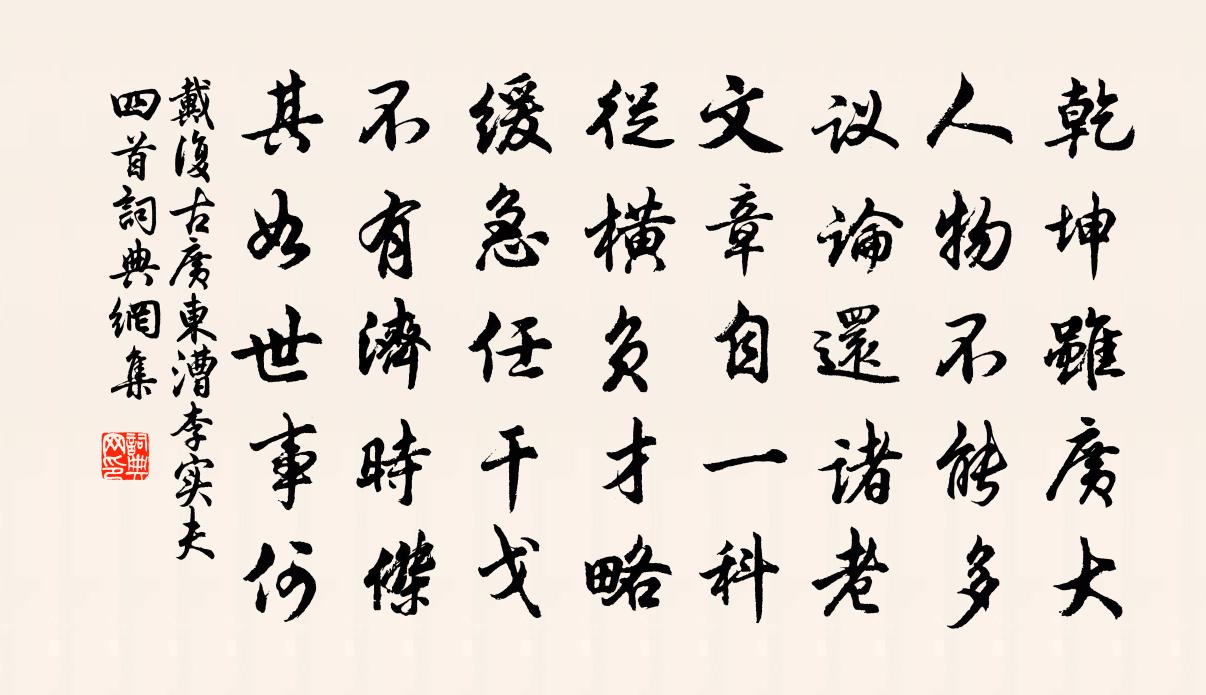 乾坤雖廣大
人物不能多
议論還諸老
文章自一科
從橫負才略
缓急任干戈
不有濟時傑
其如世事何
戴復古廣東漕李实夫
四首詞典網集
詞典网印